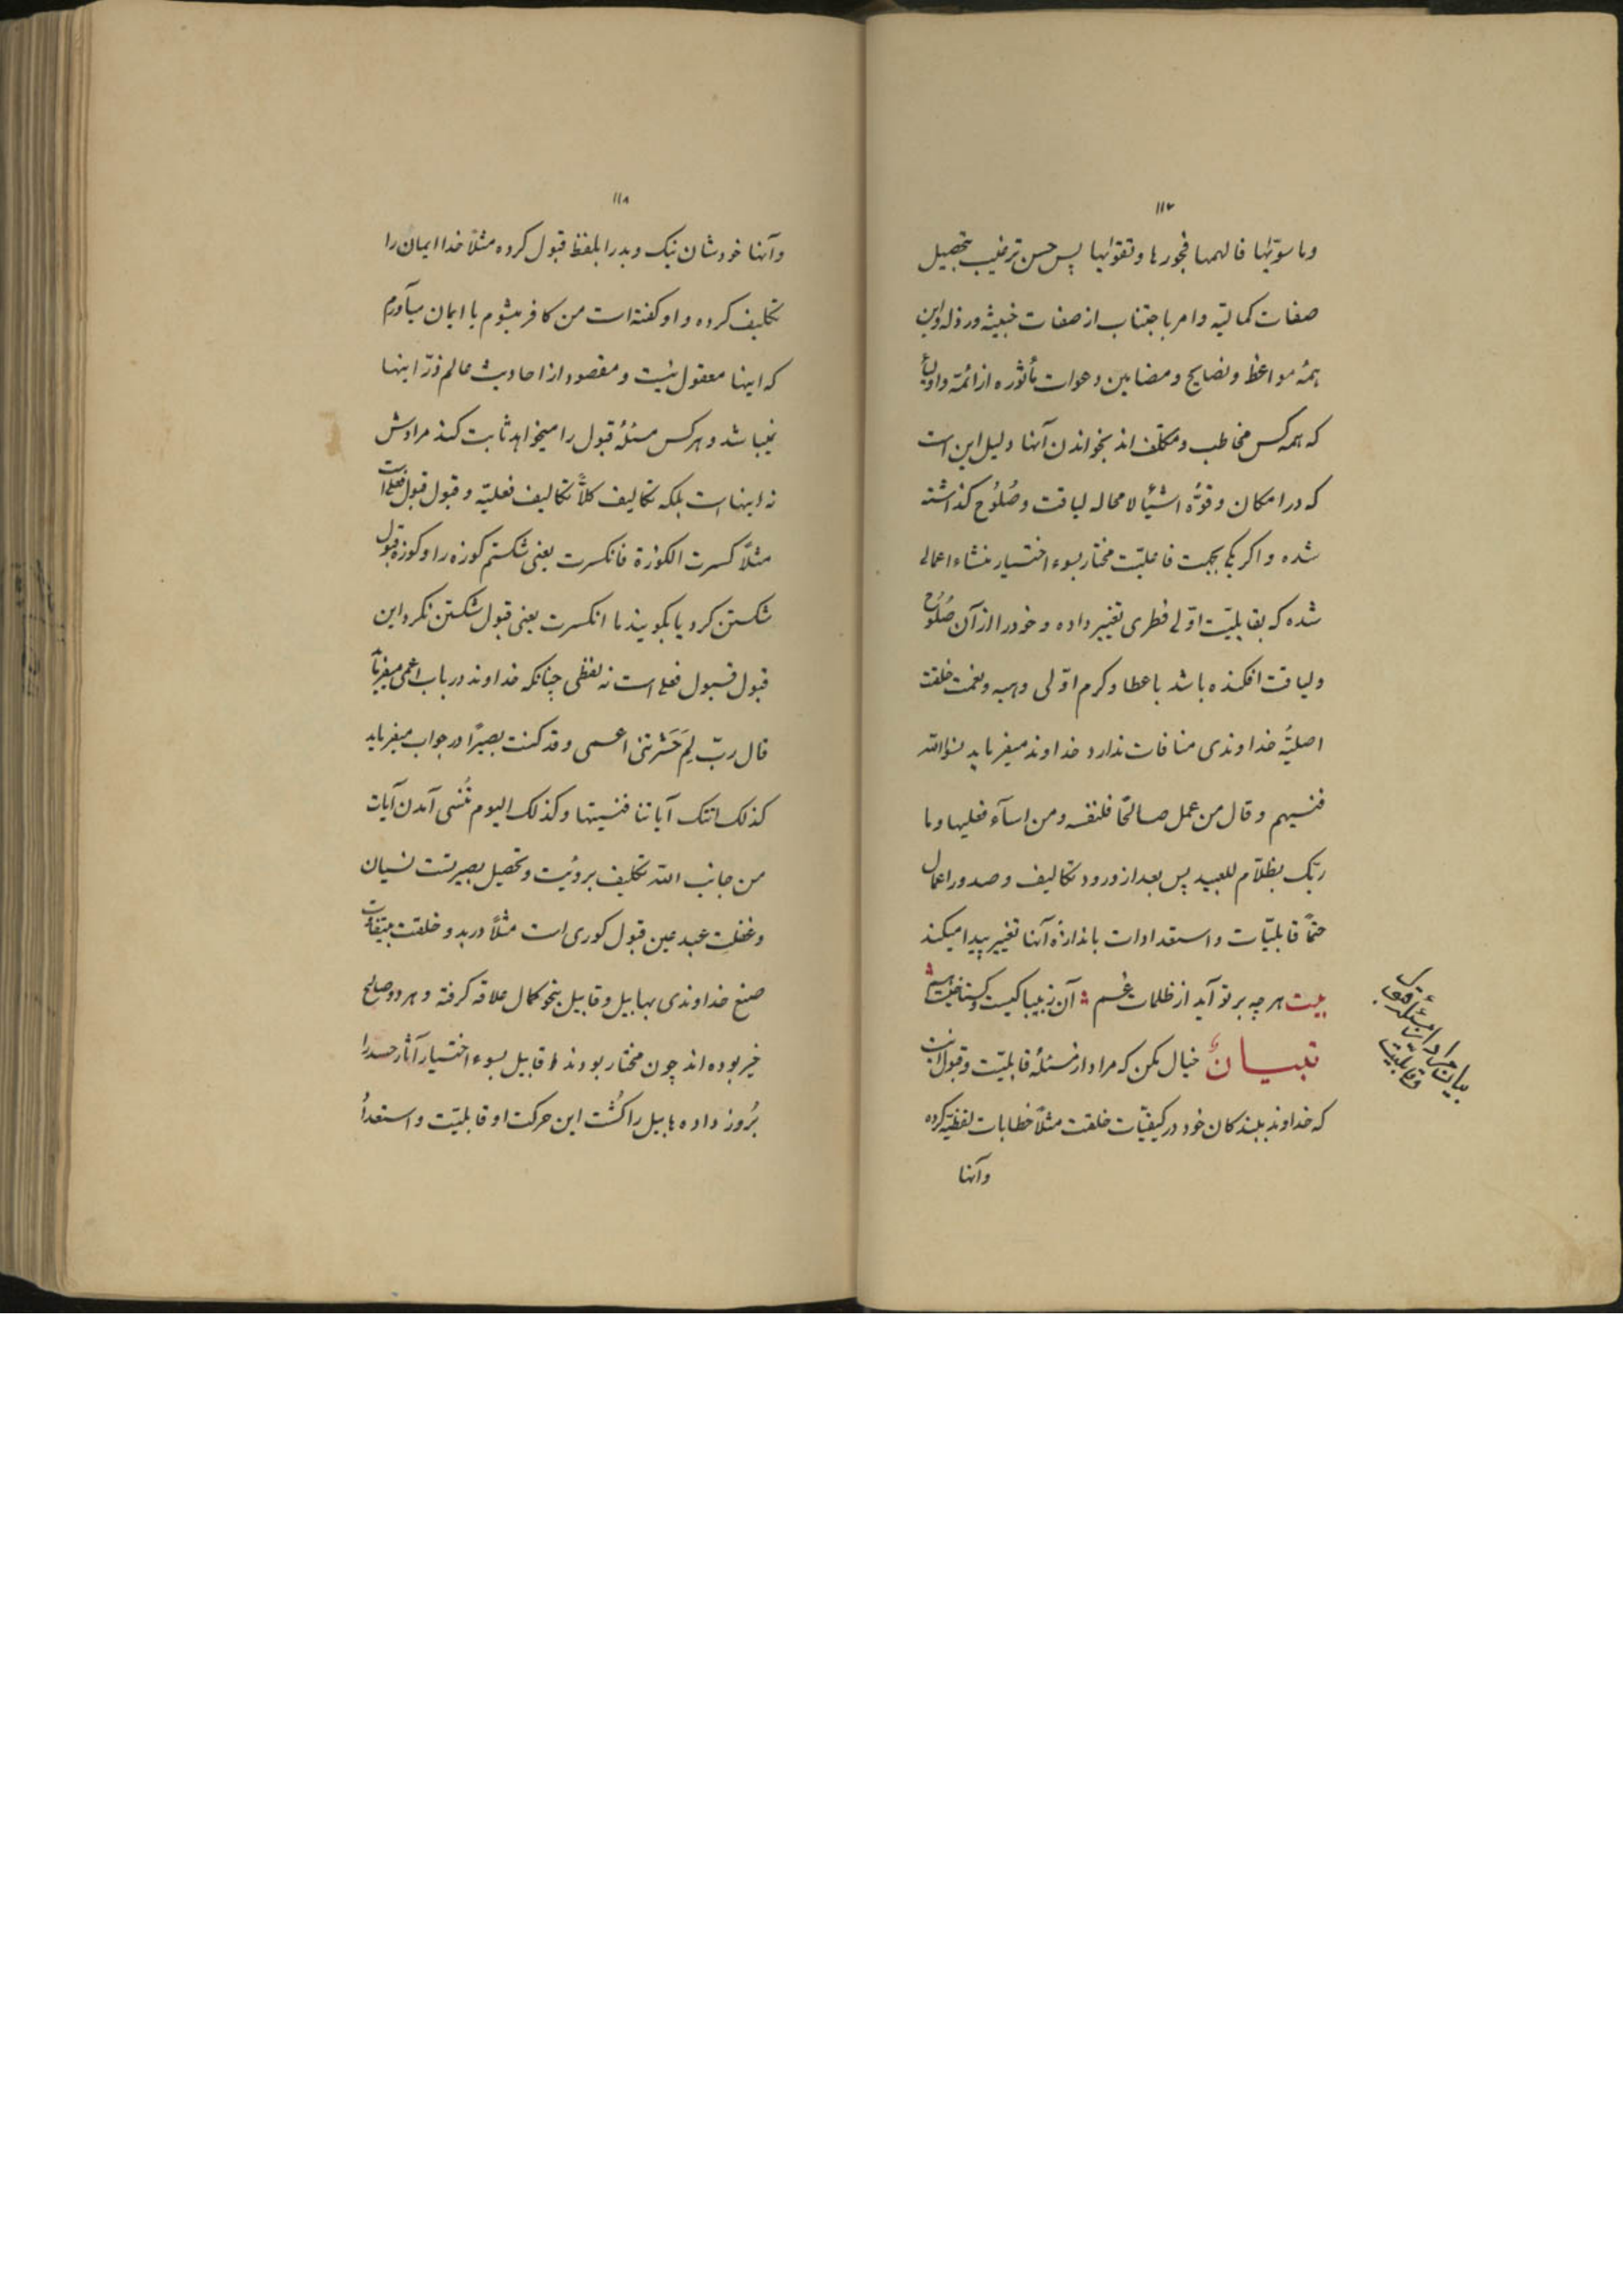 ۱۱۷
وما سوّیٰها فالهمها فجورها وتقوٰیها پس حسن ترغیب بتحصیل
صفات کمالیّه وامر باجتناب از صفات خبیثه ورذله واین
همهٔ مواعظ ونصایح ومضامین دعوات مأثوره از ائمّه واولیأ
که همه کس مخاطب ومکلّف اند بخواندن آنها دلیل این است
که در امکان وقوّه اشیأ لامحاله لیاقت وصُلُوح گذاشته
شده واگر یکی بجهت فاعلیّت مختار بسوء اختیار منشاء اعمالی
شده که بقابلیّت اوّلی فطری تغییر داده وخود را از آن صُلُوح
ولیاقت افکنده باشد با عطا وکرم اوّلی وهبیه ونعمت خلقت
اصلیّهٔ خداوندی منافات ندارد خداوند میفرماید نسوا الله
فنسیهم وقال من عمل صالحًا فلنفسه ومن اسآء فعلیها وما
ربّک بظلّام للعبید پس بعد از ورود تکالیف وصدور اعمال
حتمًا قابلیّات واستعدادات باندازه آنها تغییر پیدا میکند
بیت هر چه بر تو آید از ظلمات غم آن ز بیباکیست وگستاخیست هم
تبیان خیال مکن که مراد از مسئلهٔ قابلیّت وقبول اینست
که خداوند ببندکان خود در کیفیّات خلقت مثلًا خطابات لفظیّه کرده
وآنها
بیان مراد از مسئلهٔ قبول
وقابلیّت
۱۱۸
وآنها خودشان نیک وبد را بلفظ قبول کرده مثلًا خدا ایمان را
تکلیف کرده واو کفته است من کافر میشوم یا ایمان میآورم
که اینها معقول نیست ومقصود از احادیث عالم ذرّ اینها
نمیباشد وهر کس مسئلهٔ قبول را میخواهد ثابت کند مرادش
نه اینهاست بلکه تکالیف کلًّا تکالیف فعلیّه وقبول قبول فعلی است
مثلًا کسرت الکوزة فانکسرت یعنی شکستم کوزه را وکوزه قبول
شکستن کرد یا بگویند ما انکسرت یعنی قبول شکستن نکرد این
قبول قبول فعلی است نه لفظی چنانکه خداوند در باب اعمی میفرماید
قال ربّ لِمَ حَشَرتنی اعمی وقد کنت بصیرًا در جواب میفرماید
کذلک اتتک آیاتنا فنسیتها وکذلک الیوم تُنسٰی آمدن آیات
من جانب الله تکلیف بر رؤیت وتحصیل بصیرتست نسیان
وغفلت عبد عین قبول کوری است مثلًا در بدو خلقت بیتفاوت
صنع خداوندی بهابیل وقابیل بنحو کمال علاقه کرفته وهر دو صالح
خیر بوده اند چون مختار بودند قابیل بسوء اختیار آثار حسد را
بُروز داده هابیل را کُشت این حرکت او قابلیّت واستعدأ